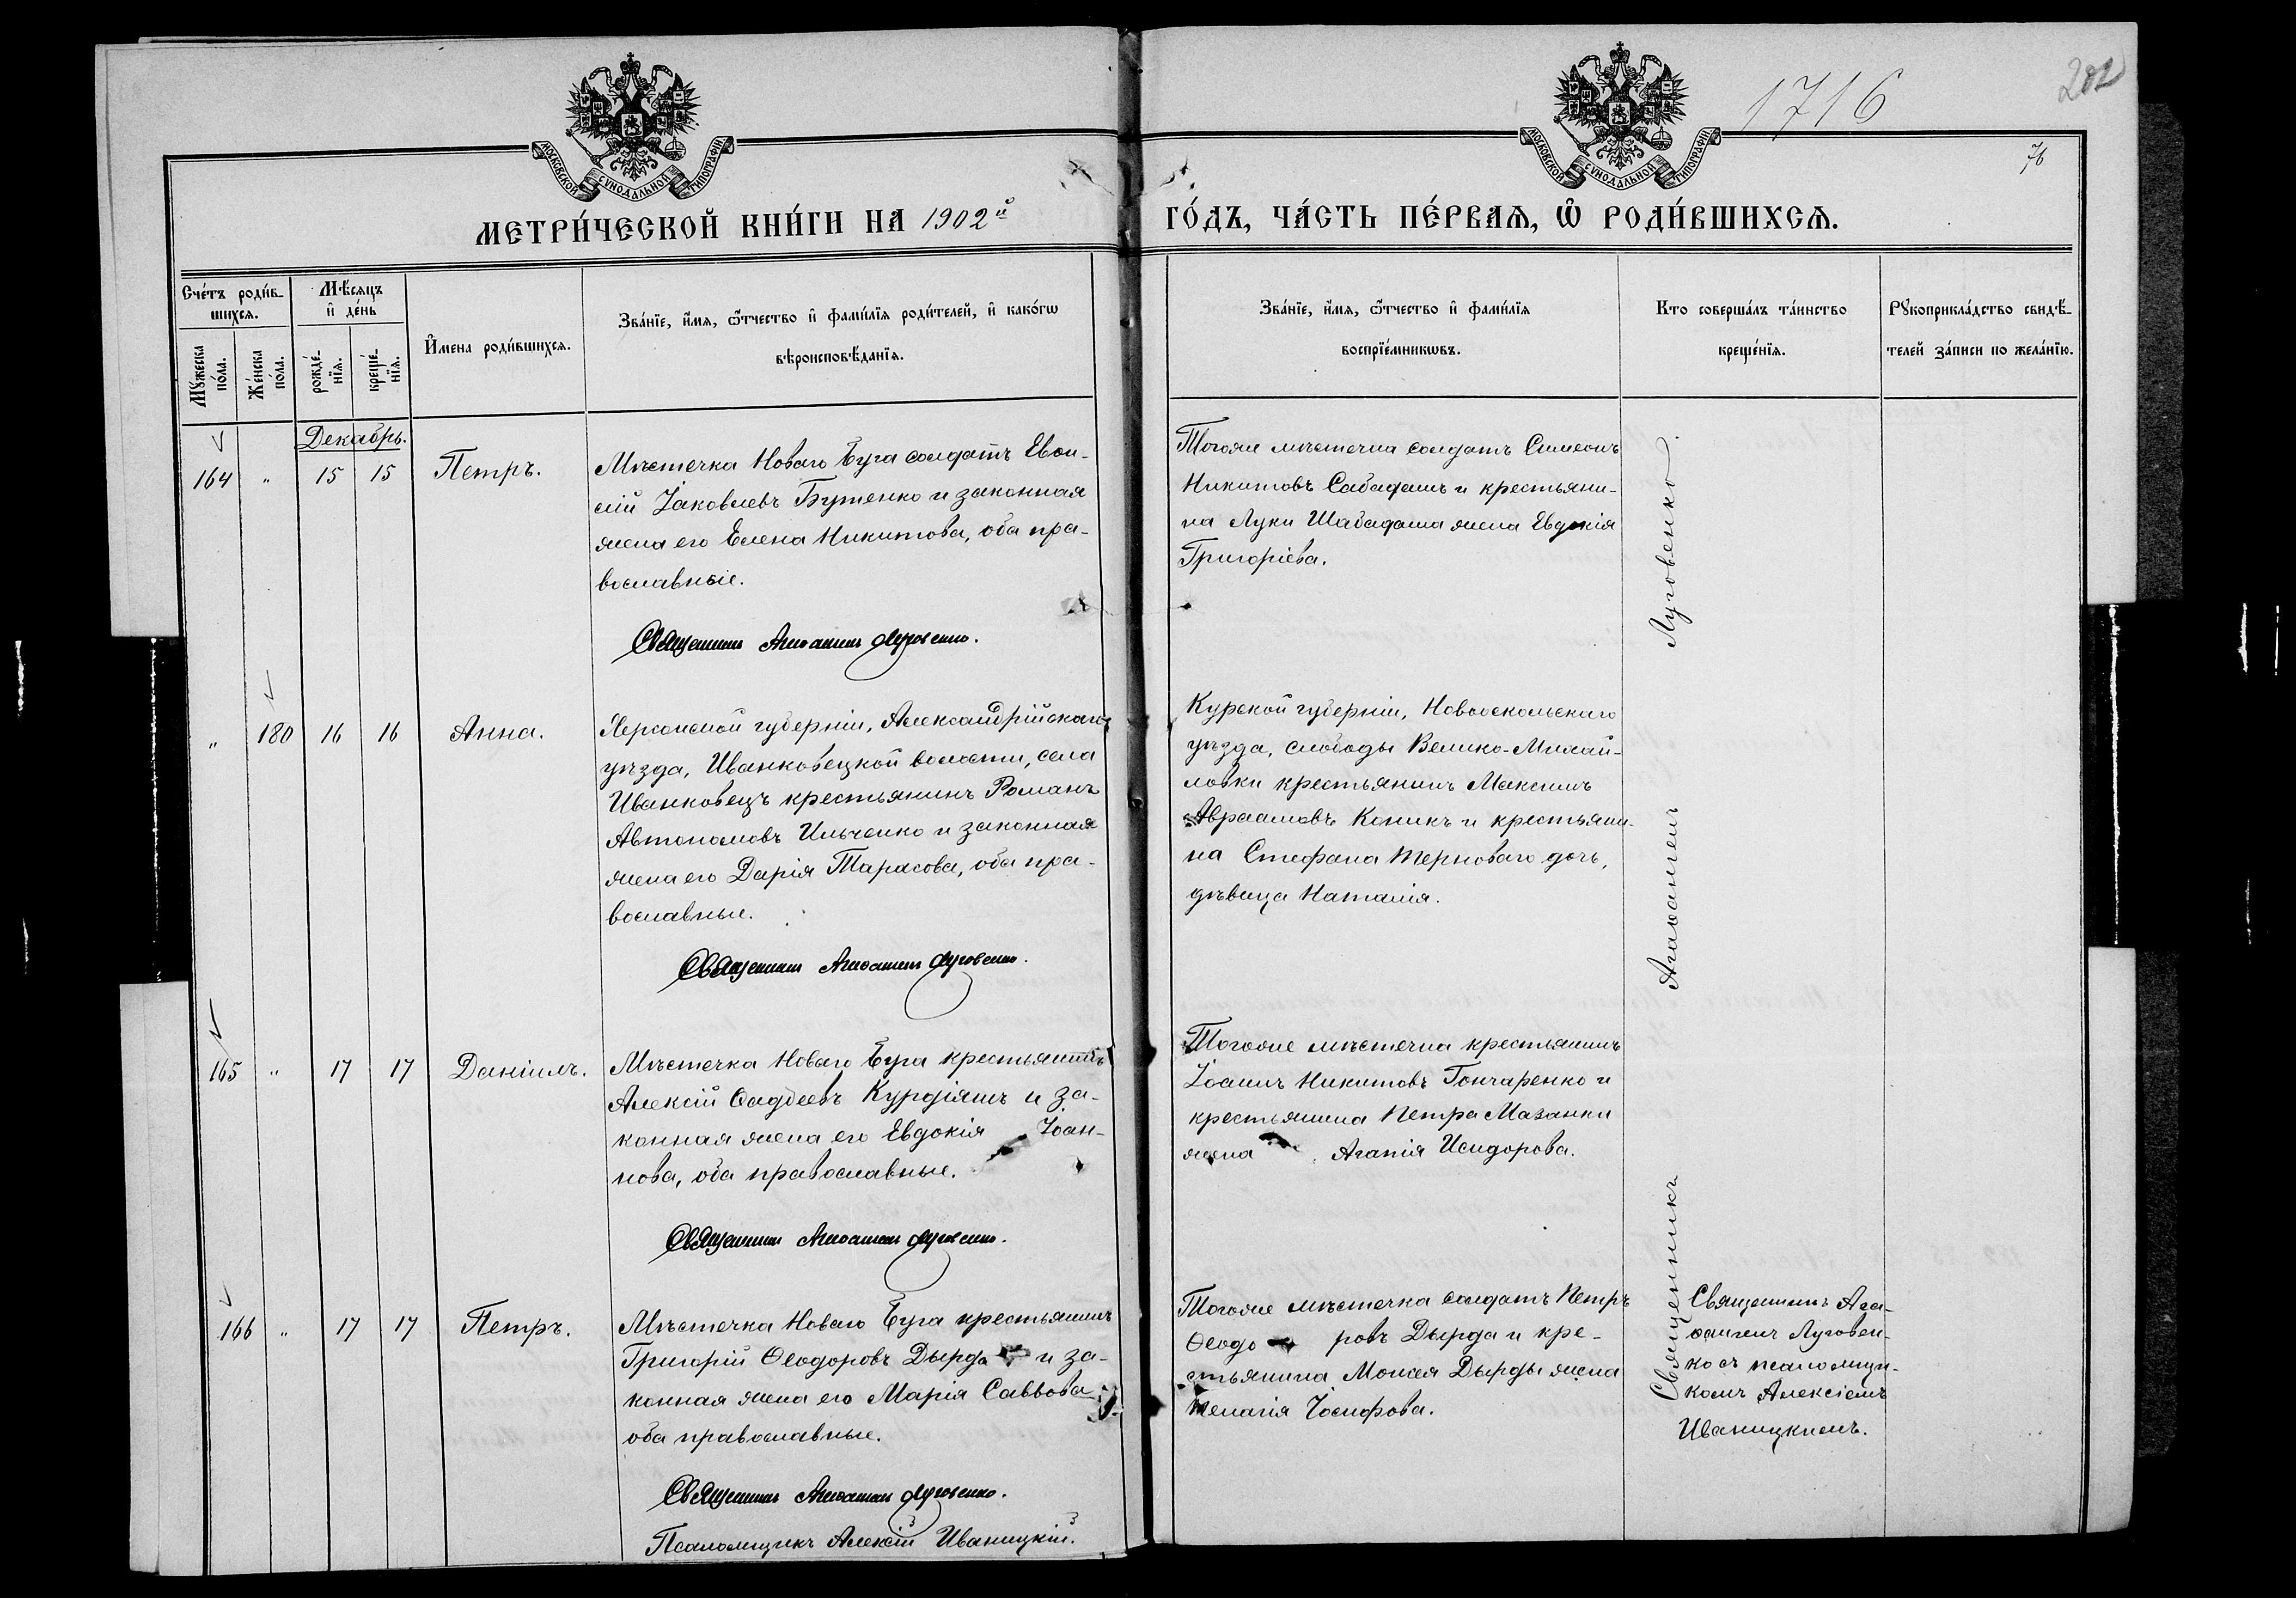 МОСКОВСКОЙ СѴНОДАЛЬНОЙ ТИПОГРАФІИ
МОСКОВСКОЙ СѴНОДАЛЬНОЙ ТИПОГРАФІИ
1716
202
76
МЕТРИ́ЧЕСКОЙ КНИ́ГИ НА 1902й
ГО́ДЪ, ЧА́СТЬ ПЕ́РВАѦ, Ѿ РОДИ́ВШИХСѦ.
Сче́тъ роди́в-
шихсѧ.
Мꙋ́жеска по́ла.
Же́нска по́ла.
Мѣ́сѧцъ и҆ де́нь
рожде́-
нїѧ.
креще́-
нїѧ.
И҆мена роди́вшихсѧ.
Зва́нїе, и҆́мѧ, ѻ҆́тчество и҆ фами́лїѧ роди́телей, и҆ како́гѡ
вѣроисповѣ́данїѧ.
Зва́нїе, и҆́мѧ, ѻ҆́тчество и҆ фами́лїѧ
воспрїе́мникѡвъ.
Кто соверша́лъ та́инство
креще́нїѧ.
Рꙋкоприкла́дство свидѣ́-
телей за́писи по жела́нїю.
Декабрь.
164 " 15 15 Петръ.
Мѣстечка Новаго Буга солдатъ Евѳи-
мій Іаковлевъ Бутенко и законная
жена его Елена Никитова, оба пра-
вославные.
Священникъ Агаѳангелъ Луговенко.
Тогоже мѣстечка солдатъ Симеонъ
Никитовъ Сабадашъ и крестьяни-
на Луки Шабадаша жена Евдокія
Григоріева.
" 180 16 16 Анна.
Херсонской губерніи, Александрійскаго
уѣзда, Иванковецкой волости, села
Иванковецъ крестьянинъ Романъ
Автономовъ Ильченко и законная
жена его Дарія Тарасова, оба пра-
вославные.
Священникъ Агаѳангелъ Луговенко.
Курской губерніи, Новооскольскаго
уѣзда, слободы Велико-Михай-
ловки крестьянинъ Максимъ
Авраамовъ Коникъ и крестьяни-
на Стефана Терноваго дочь,
дѣвица Наталія.
165 " 17 17 Даніилъ.
Мѣстечка Новаго Буга крестьянинъ
Алексій Ѳаддеевъ Курдіяшъ и за-
конная жена его Евдокія Іоан-
нова, оба православные.
Священникъ Агаѳангелъ Луговенко.
Тогоже мѣстечка крестьянинъ
Іоаннъ Никитовъ Гончаренко и
крестьянина Петра Мазанки
жена Агапія Исидорова.
166 " 17 17 Петръ.
Мѣстечка Новаго Буга крестьянинъ
Григорій Ѳеодоровъ Дырда и за-
конная жена его Марія Саввова
оба православные.
Священникъ Агаѳангелъ Луговенко.
Псаломщикъ Алексій Иваницкій.
Тогоже мѣстечка солдатъ Петръ
Ѳеодо ровъ Дырда и кре-
стьянина Моисея Дырды жена
Пелагія Іосифова.
Священникъ Агаѳангелъ Луговенко.
Священникъ Ага-
ѳангелъ Луговен-
ко съ псаломщи-
комъ Алексіемъ
Иваницкимъ.